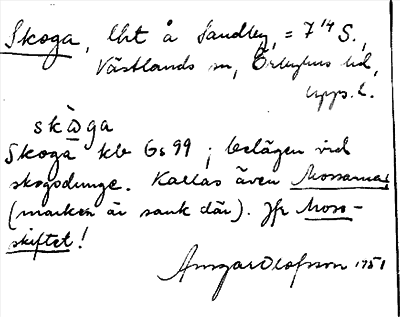 Skoga, lht å Sandby, = 7¹⁴ S.,
Västlands sn, Örbyhus hd,
Upps. l.
skὼga
Skoga kb Gs 99 ; belägen vid
skogsdunge. Kallas även Mossarna,
(marken är sank där). Jfr Moss-
skiftet!
Ansgar Olofsson 1951